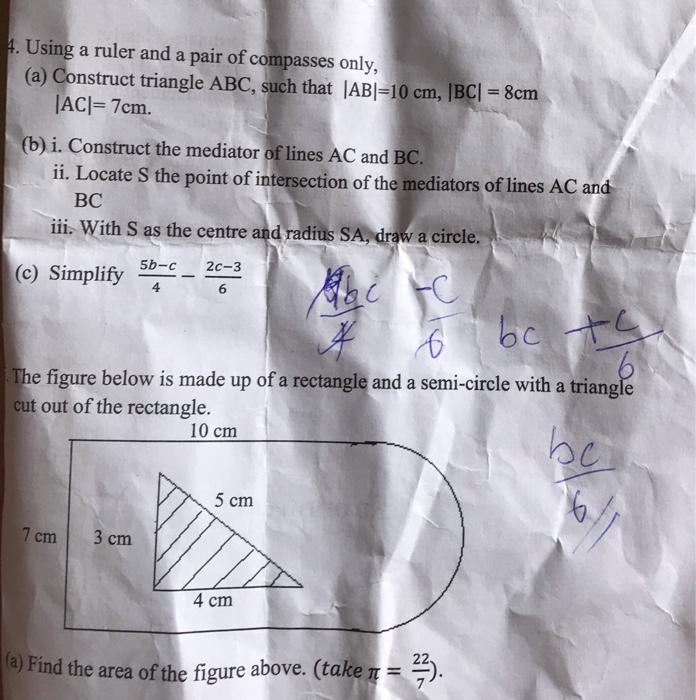 4. Using a ruler and a pair of compasses only,
(a) Construct triangle ABC, such that |AB|=10 cm, |BC| = 8cm
|AC|= 7cm.
(b) i. Construct the mediator of lines AC and BC.
ii. Locate S the point of intersection of the mediators of lines AC and
BC
iii. With S as the centre and radius SA, draw a circle.
(c) Simplify \frac{5b-c}{4} - \frac{2c-3}{6}
bc/4 -c/6 bc +c/6
The figure below is made up of a rectangle and a semi-circle with a triangle
cut out of the rectangle.
bc/6
10 cm
5 cm
7 cm 3 cm
4 cm
(a) Find the area of the figure above. (take π = \frac{22}{7}).